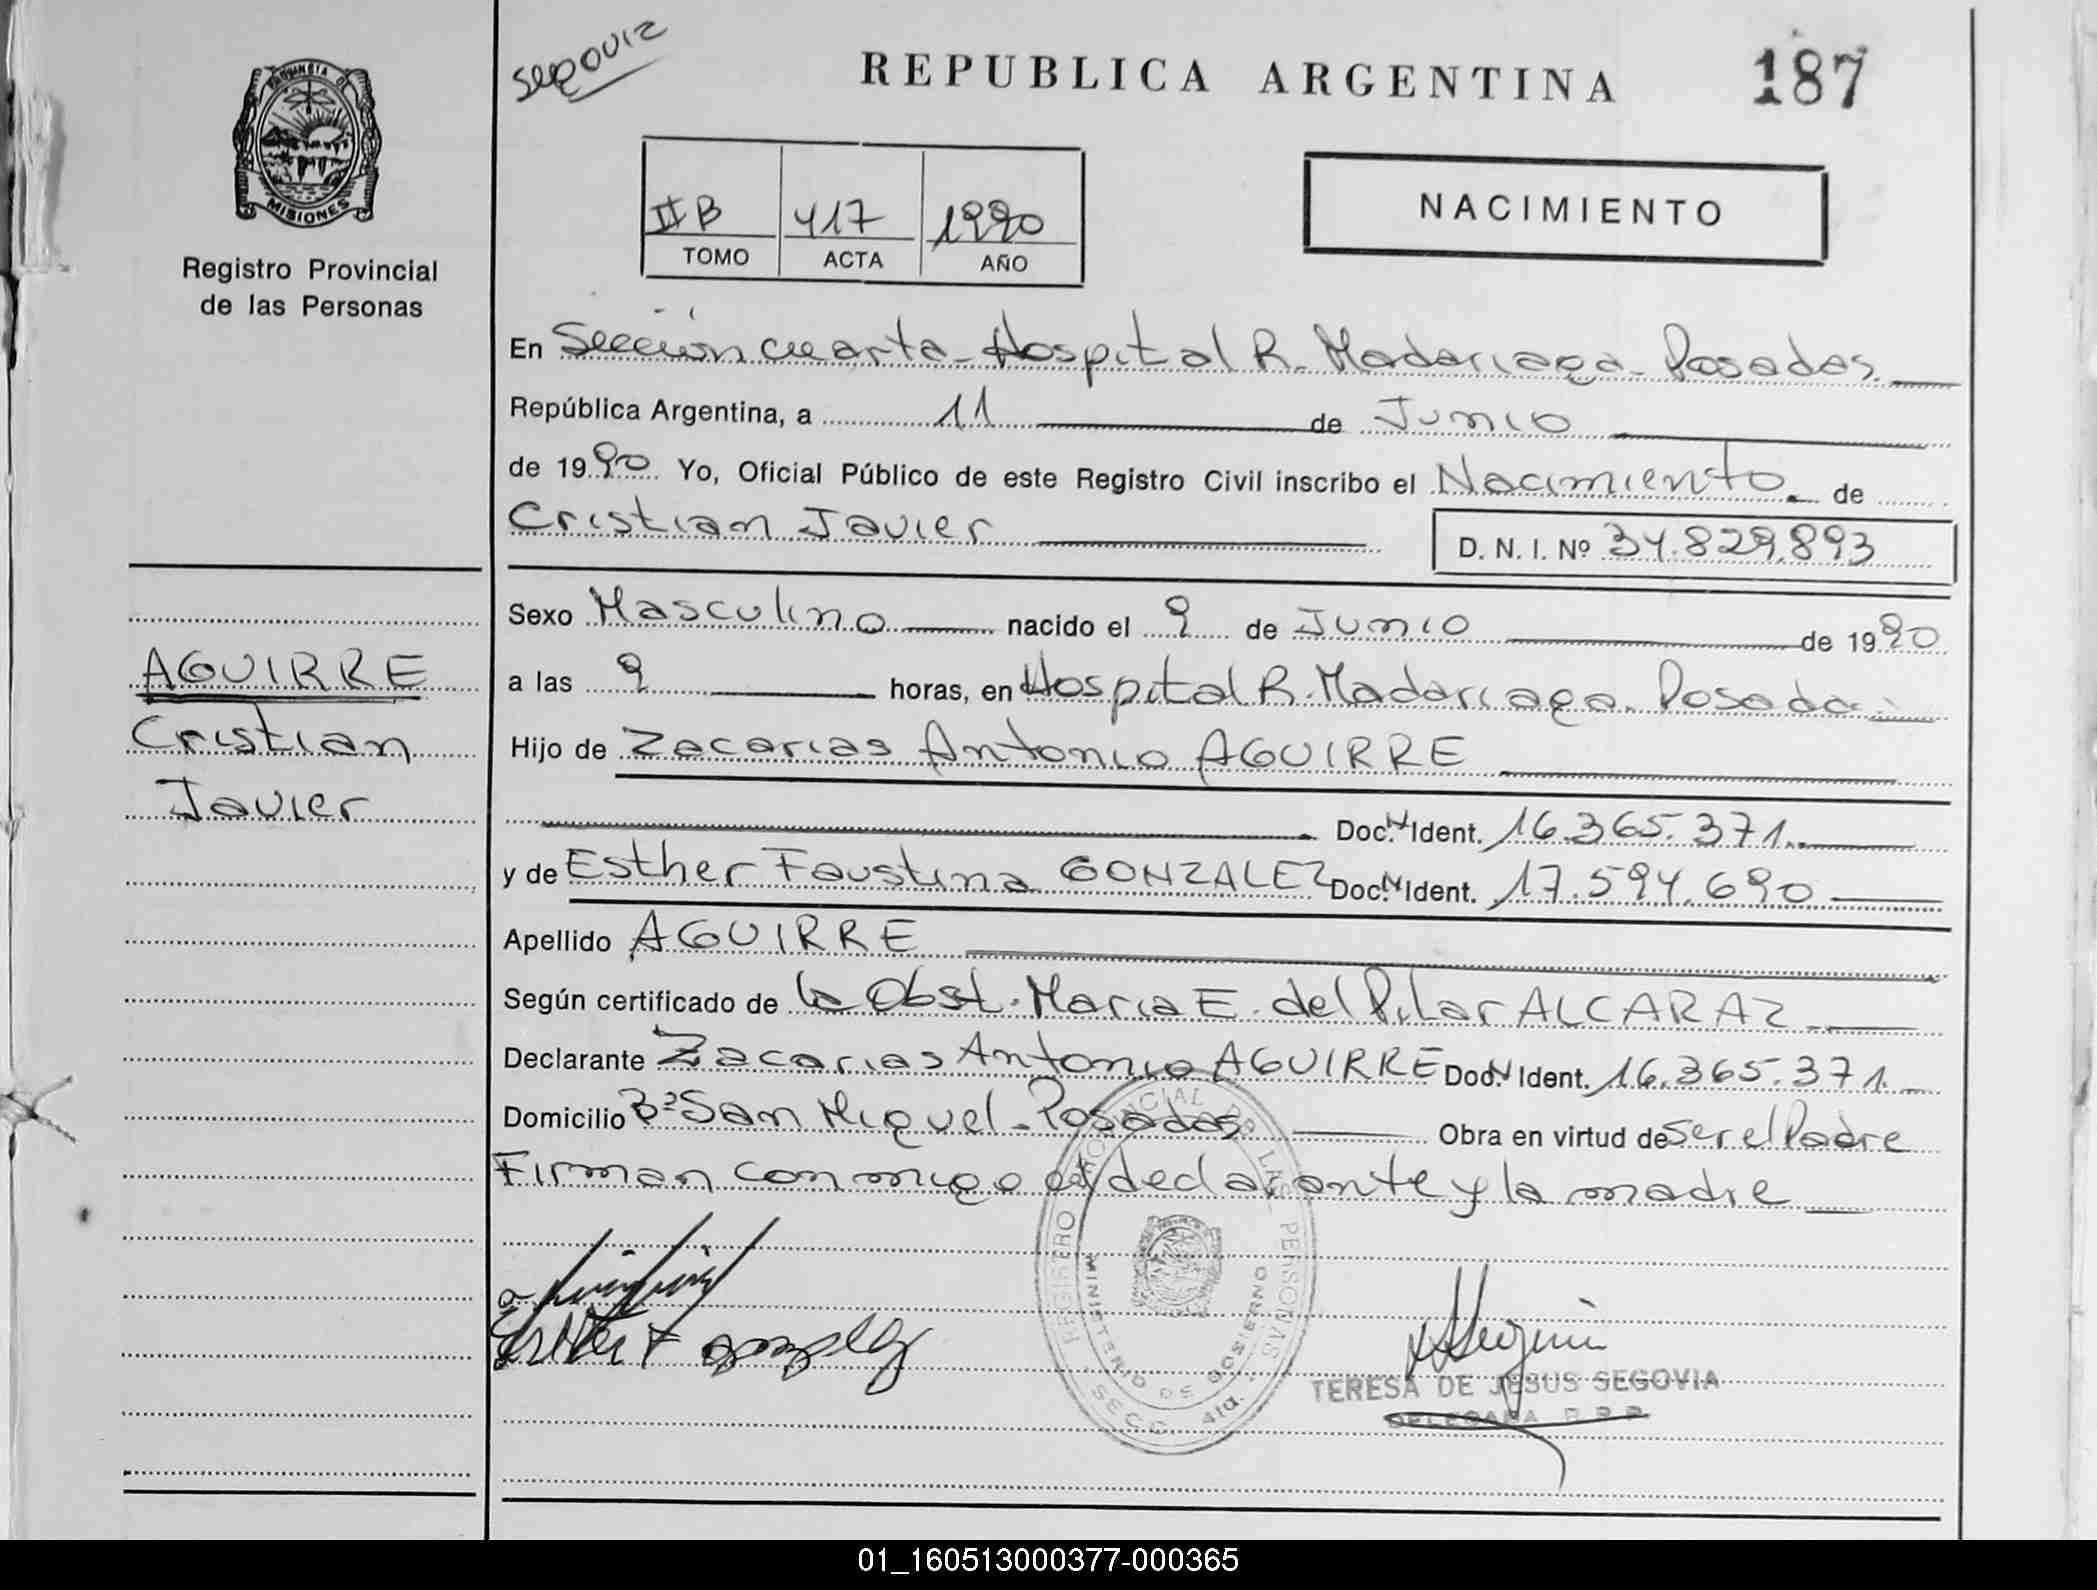 PROVINCIA DE
MISIONES
Registro Provincial
de las Personas
AGUIRRE
Cristian
Javier
Segovia
REPUBLICA ARGENTINA
187
II B 417 1990
TOMO ACTA AÑO
NACIMIENTO
En Sección cuarta - Hospital R. Madariaga - Posadas
República Argentina, a 11 de Junio
de 1990 Yo, Oficial Público de este Registro Civil inscribo el Nacimiento de
Cristian Javier
D. N. I. Nº 34.829.893
Sexo Masculino nacido el 9 de Junio de 1990
a las 9 horas, en Hospital R. Madariaga. Posadas
Hijo de Zacarias Antonio AGUIRRE
Doc. N Ident. 16.365.371
y de Esther Faustina GONZALEZ Doc. N Ident. 17.594.690
Apellido AGUIRRE
Según certificado de la Obst. Maria E. del Pilar ALCARAZ
Declarante Zacarias Antonio AGUIRRE Doc. N Ident. 16.365.371
Domicilio Bº San Miguel - Posadas Obra en virtud de ser el Padre
Firman conmigo el declarante y la madre
Esther F Gonzalez
REGISTRO PROVINCIAL DE LAS PERSONAS
MINISTERIO DE GOBIERNO
SECC. 4ta.
TERESA DE JESUS SEGOVIA
DELEGADA R. P. P.
01_160513000377-000365